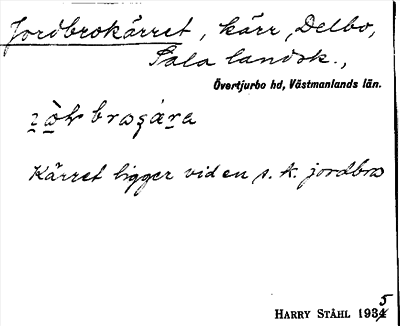 Jordbrokärret, kärr, Delbo,
Sala landsk.,
Övertjurbo hd, Västmanlands län.
Kärret ligger vid en s. k. jordbro
HARRY STÅHL 1935